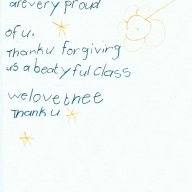 arevery proud
of u.
Thank u forgiving
us a beatyful class
welovethee
Thank u